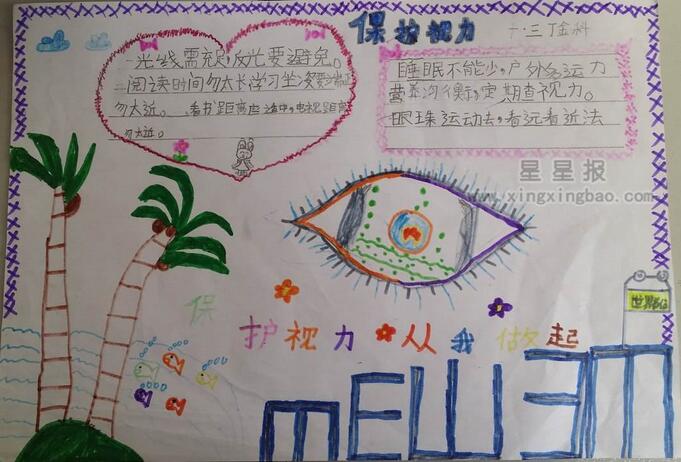 保护视力
一.三丁金科
一光线需充足,反光要避免。
二阅读时间勿太长学习坐姿要端正
勿太近。 看书距离应适中,电视距离
勿太近。
睡眠不能少,户外多运力
营养均衡,定期查视力。
眼珠运动去,看远看近法
星星报
www.xingxingbao.com
保护视力 从我做起